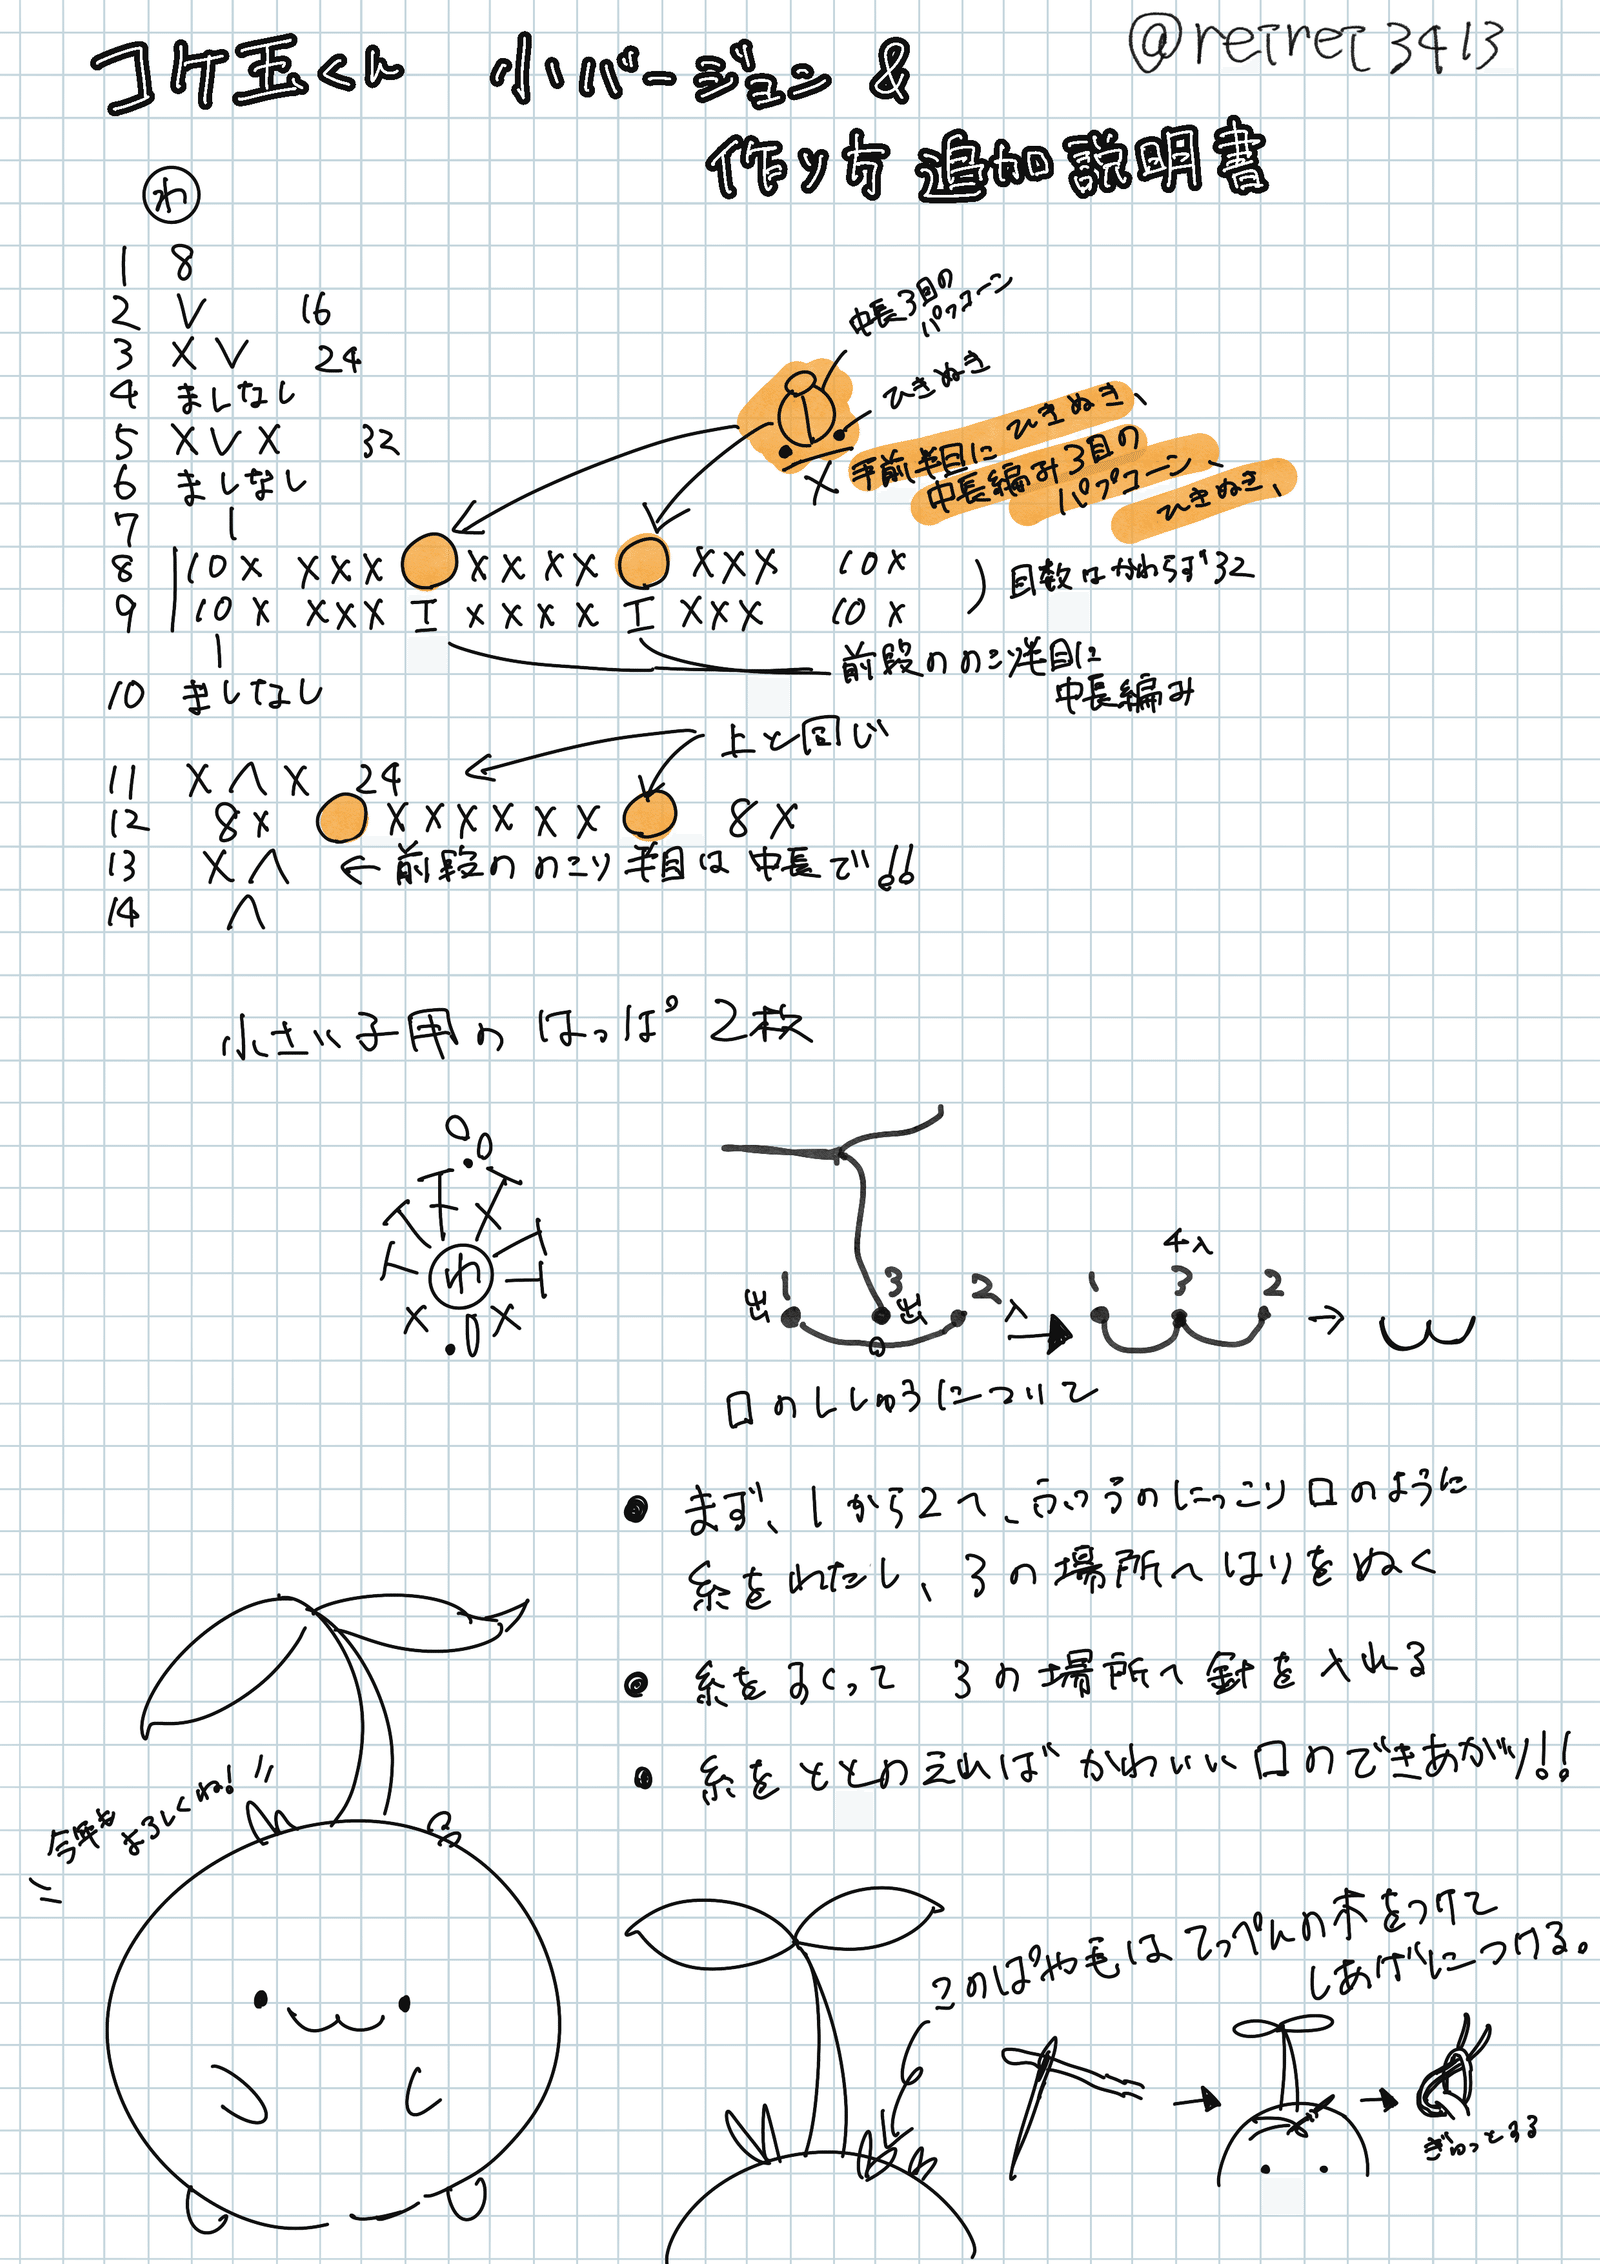 @reiret3413
コケ玉くん 小バージョン &
作り方 追加説明書
わ
1 8
2 V 16
3 X V 24
4 ましなし
5 X V X 32
6 ましなし
7 |
8 10 X X X X X X X X X X X 10 X
9 10 X X X X T X X X X T X X X 10 X
|
10 ましなし
中長3目の
パプコーン
ひきぬき
X 手前半目に ひきぬき、
中長編み3目の
パプコーン、
ひきぬき、
目数はかわらず32
前段ののこり半目に
中長編み
上と同じ
11 X Λ X 24
12 8 X X X X X X X 8 X
13 X Λ ← 前段ののこり半目は中長で!!
14 Λ
小さい子用の はっぱ 2枚
わ
出 1 3 出 2 入
1 4入 3 2
口のししゅうについて
● まず、1から2へ、ふつうのにっこり口のように
糸をわたし、3の場所へはりをぬく
● 糸をすくって 3の場所へ針を入れる
● 糸をととのえればかわいい口のできあがり!!
今年も
よろしくね!
このぽや毛はてっぺんの木をつけて
しあげにつける。
ぎゅっとする